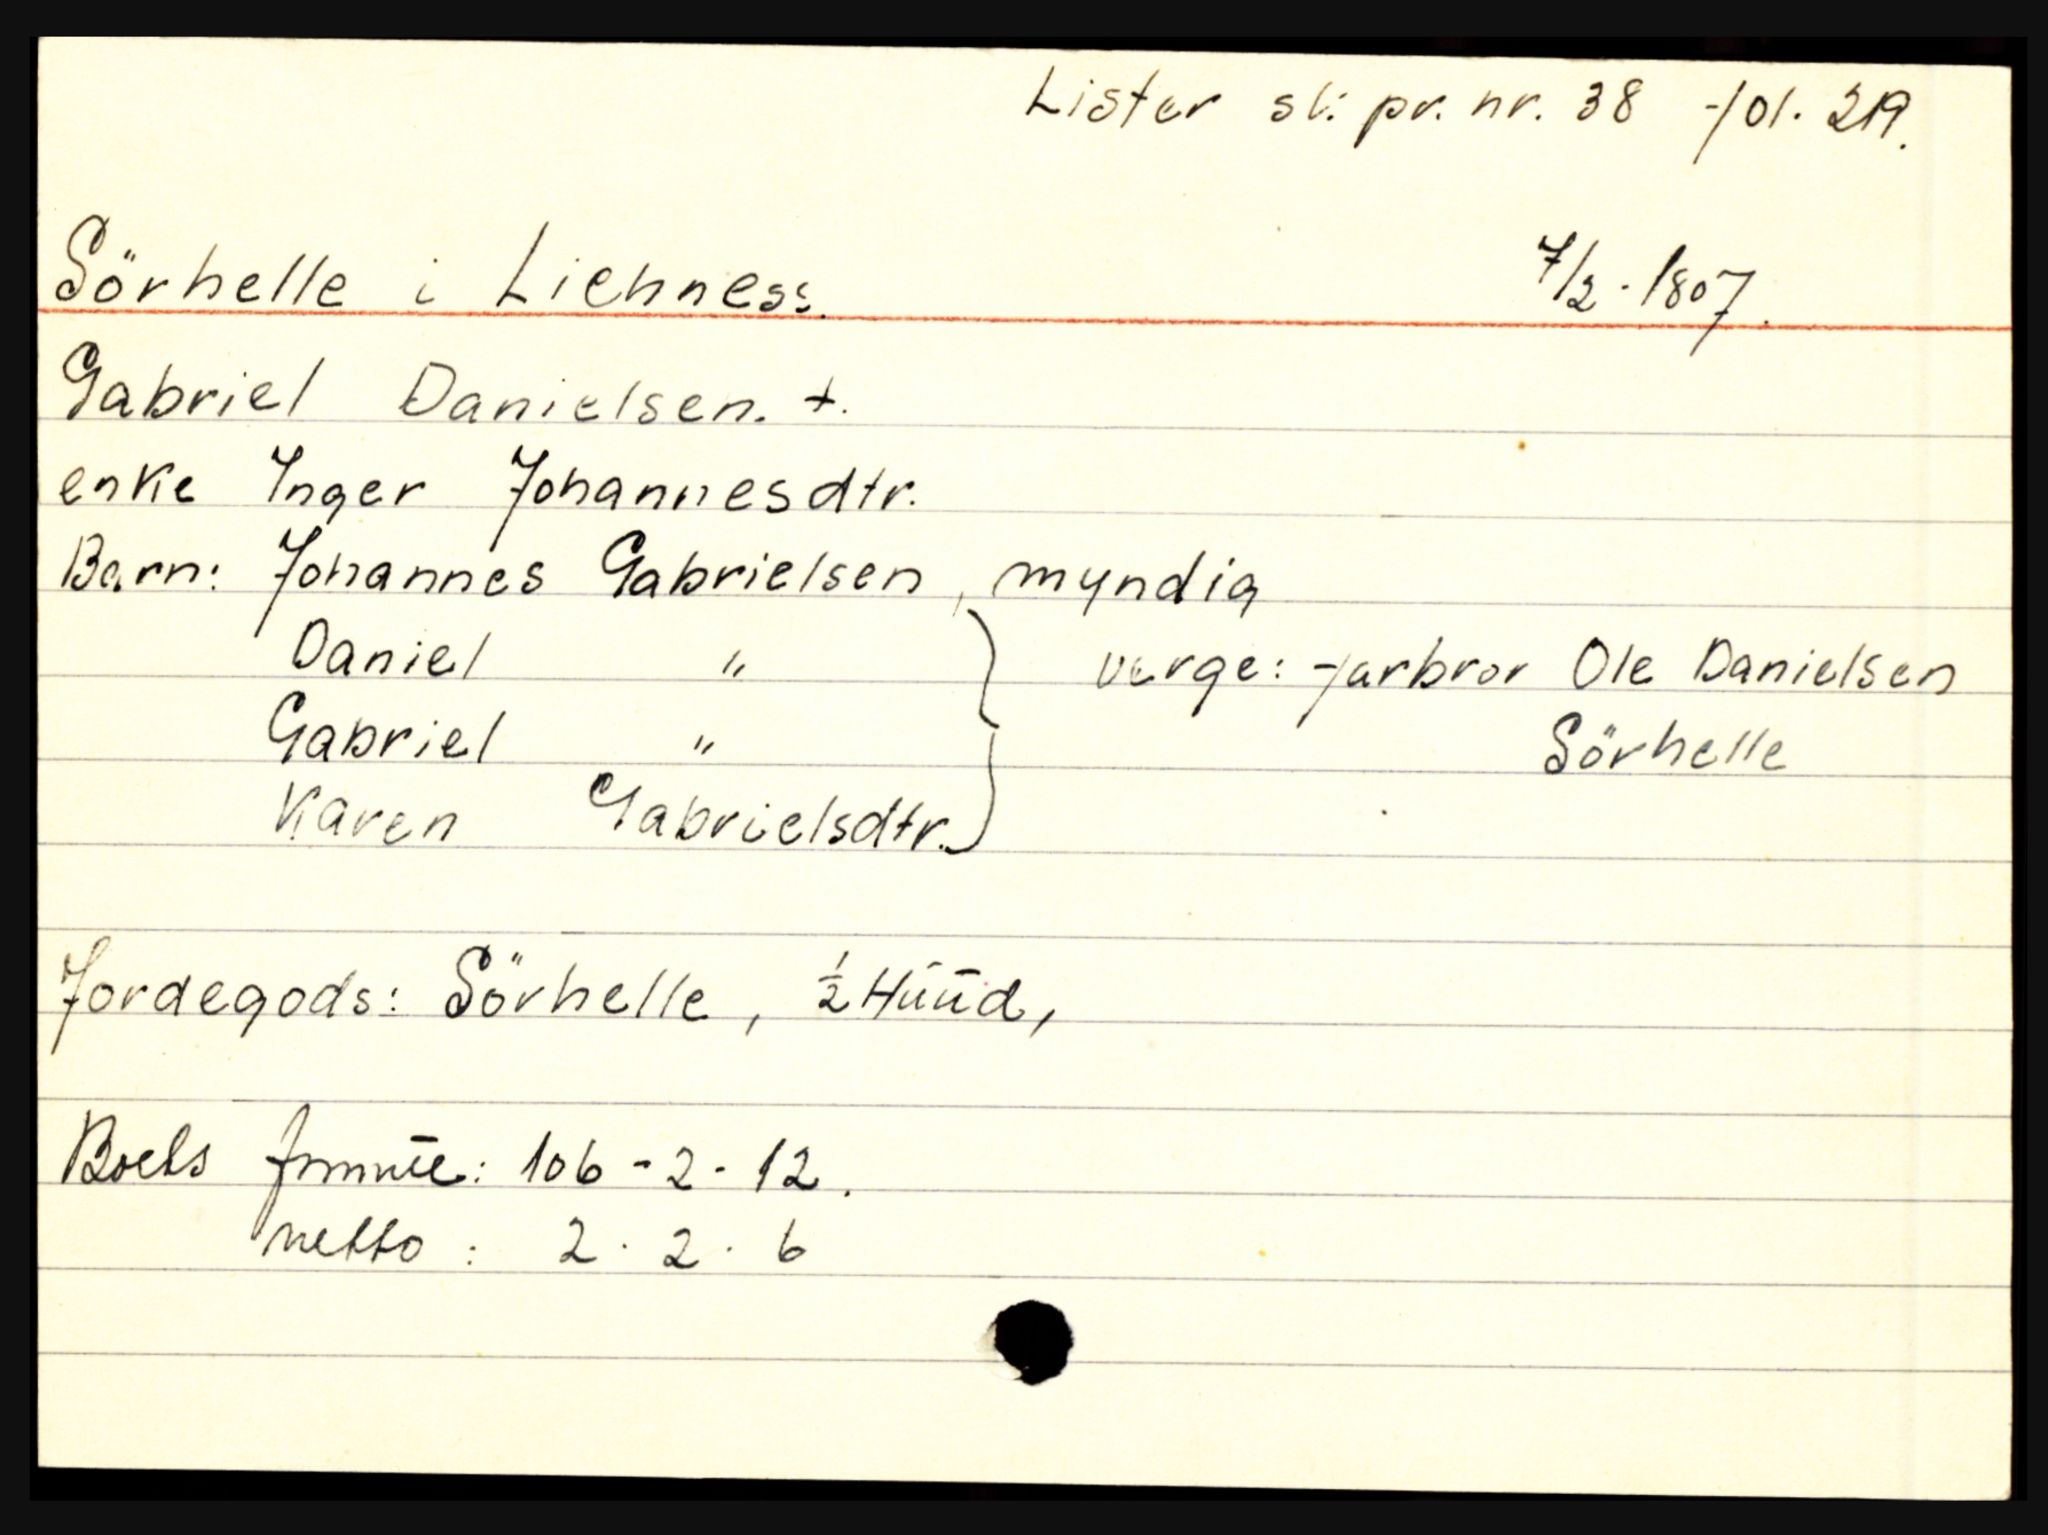 Lister sk. pr. nr. 38 fol. 219.
Sörhelle i Liehness. 7/2 - 1807.
Gabriel Danielsen. +.
enke Inger Johannesdtr.
Barn: Johannes Gabrielsen, myndig
Daniel " } verge: farbror Ole Danielsen
Gabriel " Sörhelle
Karen Gabrielsdtr.
Jordegods: Sörhelle, ½ Huud,
Boets : 106 - 2 - 12.
netto : 2 . 2 . 6